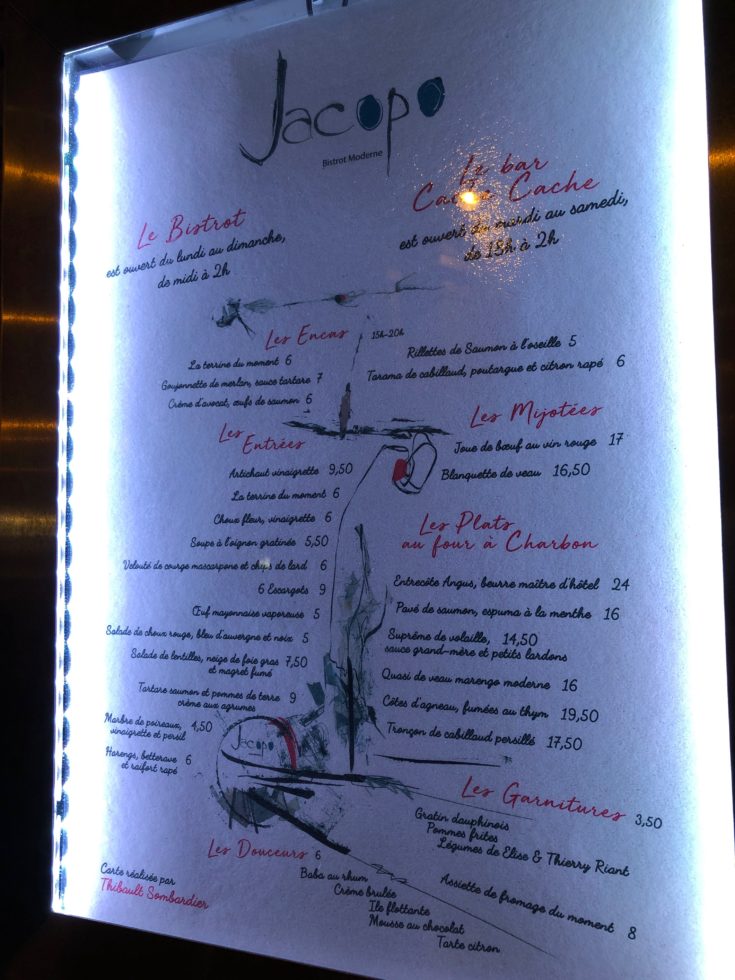 Jacopo
Bistrot Moderne
Le Bistrot
est ouvert du lundi au dimanche,
de midi à 2h
Le bar
Cache Cache
est ouvert du mardi au samedi,
de 18h à 2h
Les Encas 15h-20h
La terrine du moment 6
Goujonnette de merlan, sauce tartare 7
Crème d'avocat, œufs de saumon 6
Rillettes de Saumon à l'oseille 5
Tarama de cabillaud, poutargue et citron rapé 6
Les
Entrées
Artichaut vinaigrette 9,50
La terrine du moment 6
Choux fleur, vinaigrette 6
Soupe à l'oignon gratinée 5,50
Velouté de courge mascarpone et chips de lard 6
6 Escargots 9
Œuf mayonnaise vaporeuse 5
Salade de choux rouge, bleu d'auvergne et noix 5
Salade de lentilles, neige de foie gras 7,50
et magret fumé
Tartare saumon et pommes de terre 9
crème aux agrumes
Marbre de poireaux, 4,50
vinaigrette et persil
Harengs, betterave 6
et raifort rapé
Les Mijotées
Joue de bœuf au vin rouge 17
Blanquette de veau 16,50
Les Plats
au four à Charbon
Entrecôte Angus, beurre maître d'hôtel 24
Pavé de saumon, espuma à la menthe 16
Suprême de volaille, 14,50
sauce grand-mère et petits lardons
Quasi de veau marengo moderne 16
Côtes d'agneau, fumées au thym 19,50
Tronçon de cabillaud persillé 17,50
Jacopo
Les Garnitures 3,50
Gratin dauphinois
Pommes frites
Légumes de Elise & Thierry Riant
Assiette de fromage du moment 8
Les Douceurs 6
Baba au rhum
Crème brulée
Ile flottante
Mousse au chocolat
Tarte citron
Carte réalisée par
Thibault Sombardier